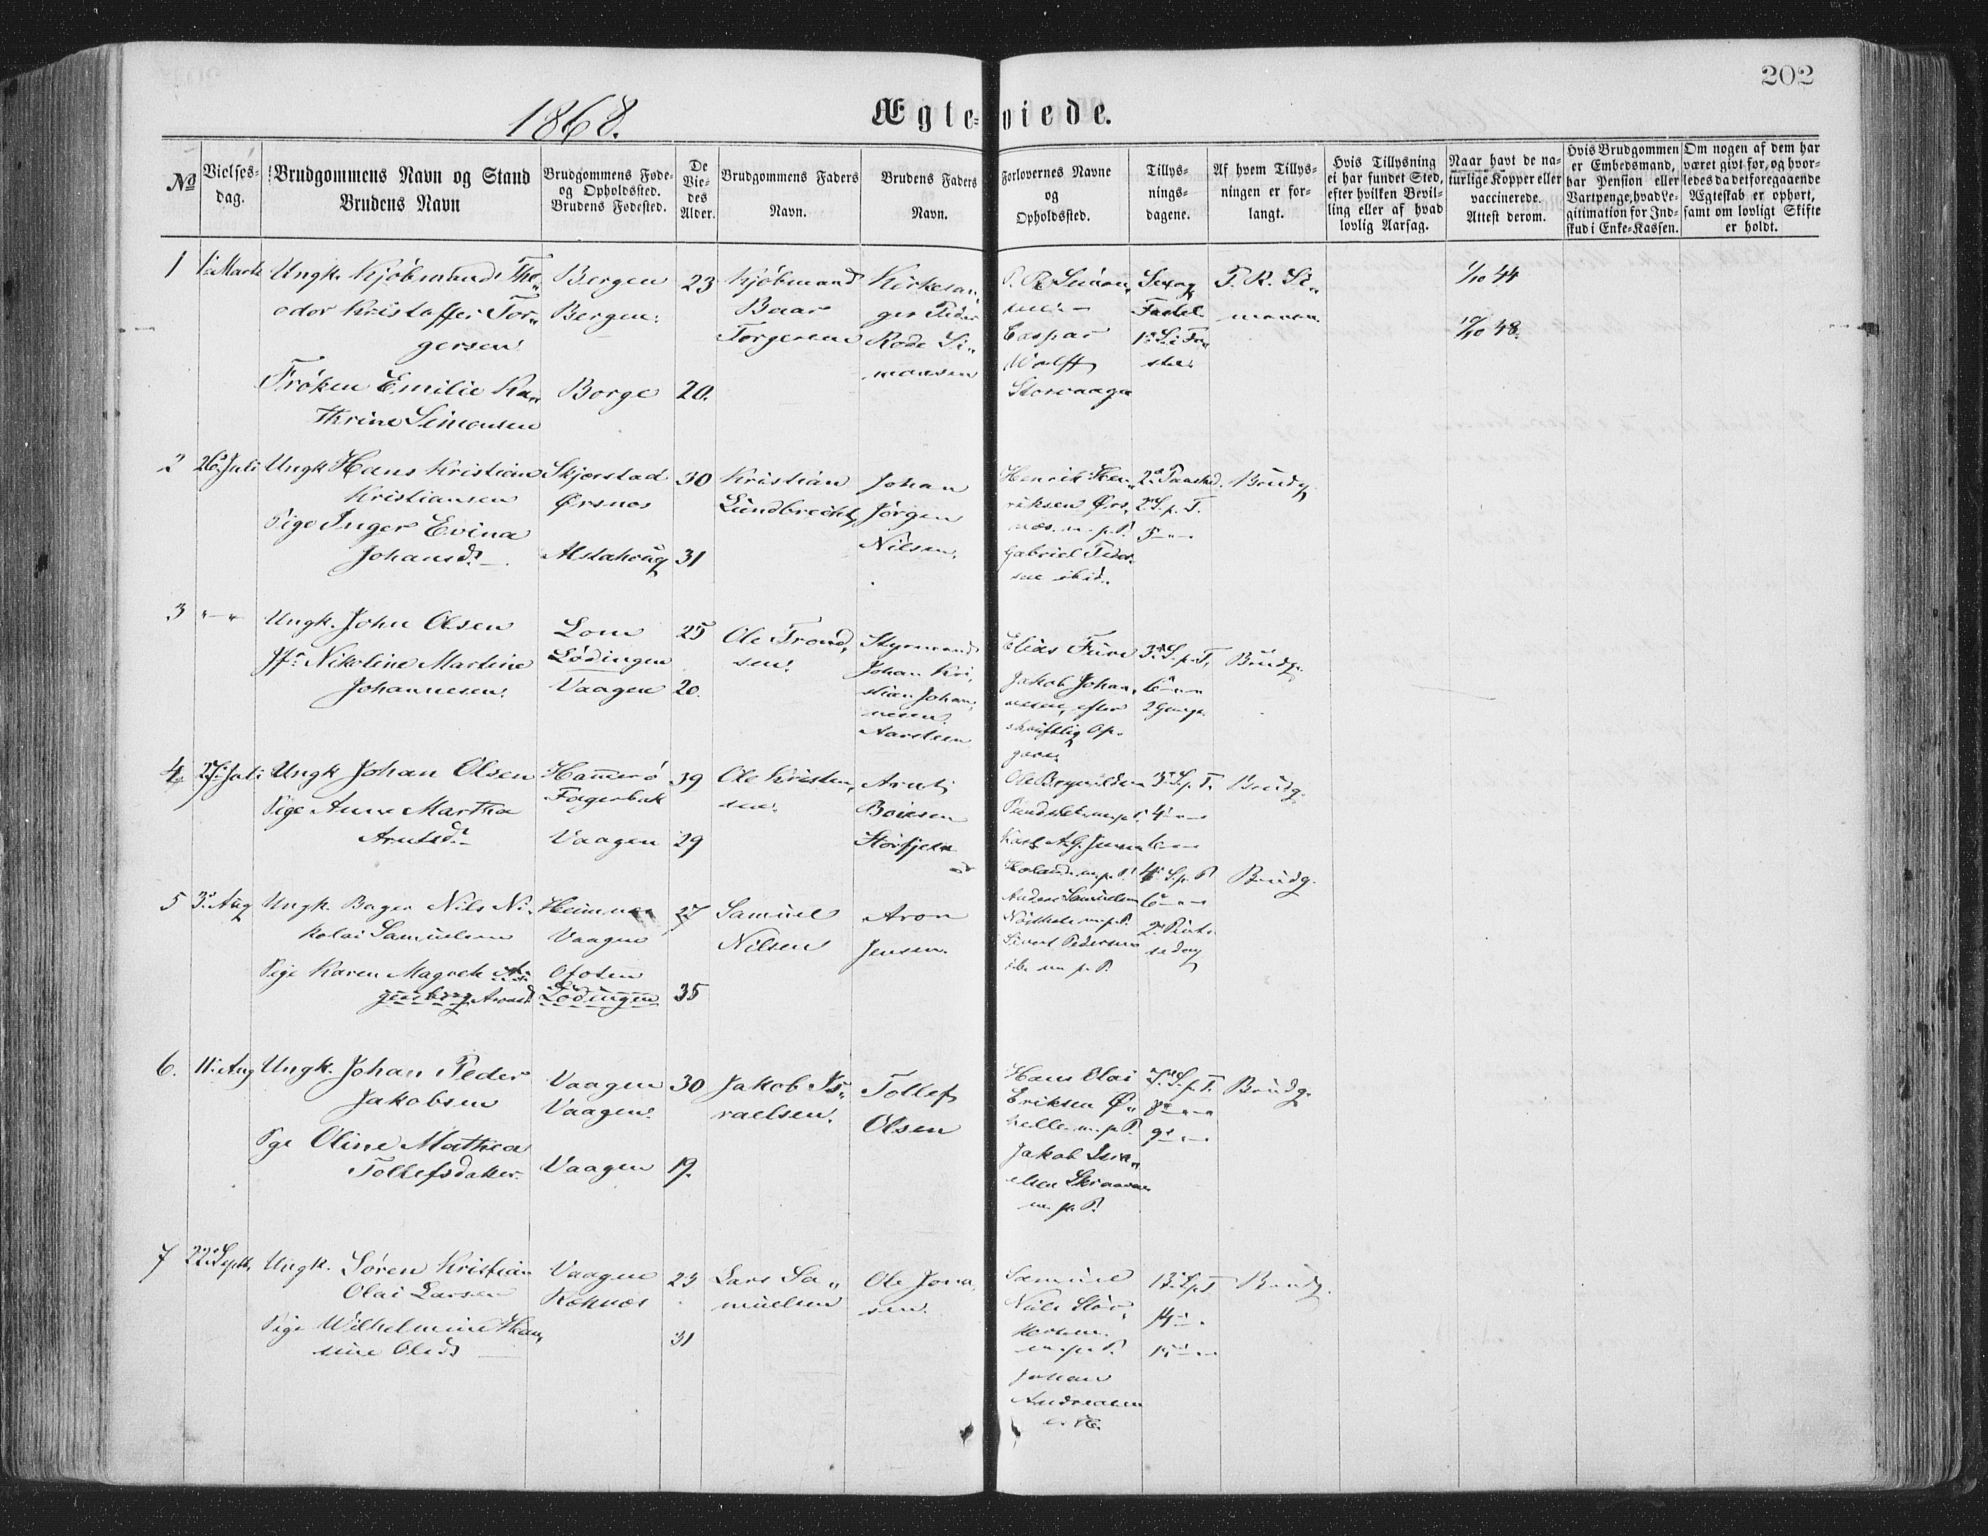 202
1868.
Ægte-viede.
No
Vielses-dag.
Brudgommens Navn og Stand
Brudens Navn
Brudgommens Føde- og Opholdssted.
Brudens Fødested.
De Vie-des Alder.
Brudgommens Faders Navn.
Brudens Faders Navn.
Forlovernes Navne og Opholdssted.
Tillys-nings-dagene.
Af hvem Tillys-ningen er for-langt.
Hvis Tillysning ei har fundet Sted, efter hvilken Bevil-ling eller af hvad lovlig Aarsag.
Naar havt de na-turlige Kopper eller vaccinerede. Attest derom.
Hvis Brudgommen er Embedsmand, har Pension eller Vartpenge, hvad Le-gitimation for Ind-skud i Enke-Kassen.
Om nogen af dem har været givt før, og hvor-ledes da det foregaaende Ægteskab er ophørt, samt om lovligt Skifte er holdt.
1
Ungk. Kjöbmand The-
odor Kristoffer Tor-
gersen
Fröken Emilie Ka-
thrine Simonsen
Bergen
Bergen.
Borge
23
20.
Kjöbmand
Baar
Torgersen
Kirkesan-
ger Peder
Rode Si-
monsen
Caspar
Wolff
Storvaagen
44
48.
2
26. Juli
Ungk Hans Kristian
Kristiansen
Pige Inger Evina
Johansd.
Skjerstad
Ørsnes
Alstahoug
30
31
Kristian
Lundbrecht
Johan
Jörgen
Nilsen.
Henrik Hen-
riksen Ørs-
næs. m. p. P.
Gabriel Peder-
sen ibid.
Brudg.
3
Ungk. John Olsen
Jfr Nikoline Martine
Johannesen.
Lom
Lödingen
Vaagen
25
20.
Ole Trond-
sen.
Styrmand
Johan Kri-
stian Johan-
nesen
Elias Fure
Jakob Johan-
nesen, efter
skriftlig Op-
gave
3. S. p. T.
6
Brudg.
4
27. Juli
Ungk Johan Olsen
Pige Anne Martha
Arntsd.
Hammerö
Fagerbak
Vaagen
39
29
Ole Kristen-
sen.
Arnt
Boiesen
Storfjell
3. S. p. T.
4
Brudg.
5
3. Aug
Ungk. Bager Nils Ni-
kolai Samuelsen
Pige Karen Magrete
Vaagen
Ofoten
Lödingen
27
35
Samuel
Nilsen
Aron
Jensen.
Sivert Pedersen
Brudg.
6.
11. Aug
Ungk. Johan Peder
Jakobsen
Pge Oline Mathea
Tollefsdatter
Vaagen
Vaagen.
Vaagen
30
19.
Jakob Is-
raelsen.
Tollef
Olsen
Hans Elai
Eriksen Ø-
Jakob Isra-
elsen Skraaven
m. p. P.
7. S. p. T.
8
9
Brudg.
7
22. Septb.
Ungk. Sören Kristian
Olai Larsen
Pige Wilhelmine Han-
sine Olsd
Vaagen
23
31
Lars Sa-
muelsen
Ole Jona-
sen.
Samuel
m. p. P.
Johan
Andreasen
13. S. p. T
14
15
Brudg.